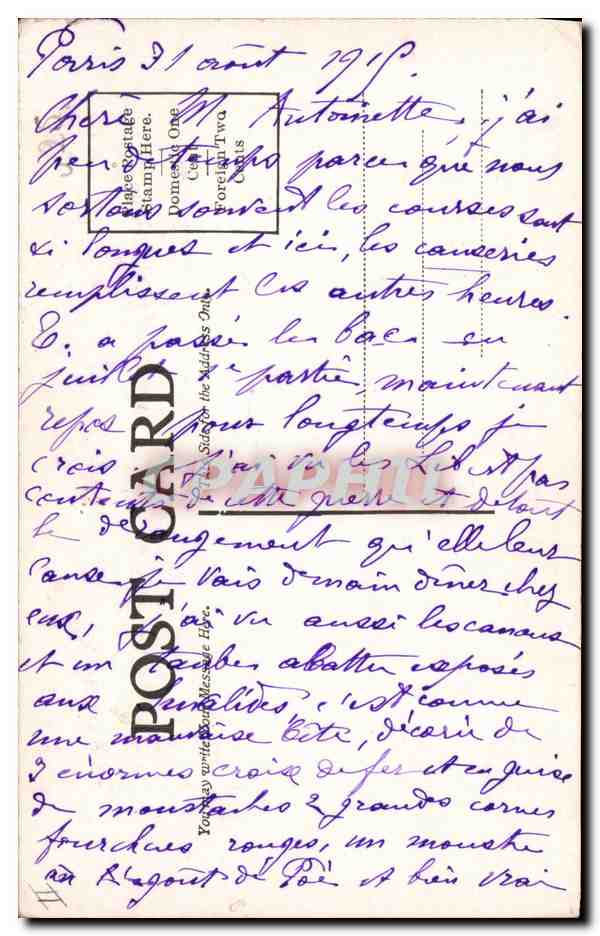 Paris 31 août 1915.
Chère M Antoinette, j'ai
peu de temps parce que nous
sortons souvent les courses sont
si longues et ici, les causeries
remplissent les autres heures.
E. a passé les baca en
juillet 1e partie, maintenant
repos pour longtemps je
crois. j'ai vu les Lib et pas
contents de cette guerre et de tout
le dérangement qu'elle leur
cause, je vais demain dîner chez
eux, j'ai vu aussi les canons
et un taube abattu exposés
aux Invalides, c'est comme
une mauvaise bête, décorée de
3 énormes croix de fer et en guise
de moustaches 2 grandes cornes
fourchues rouges, un monstre
à Edgout de Poë et bien vrai
II
Place Postage
Stamp Here.
Domestic One
Cent
Foreign Two
Cents
POST CARD
Side for the Address Only.
You may write Your Message Here.
CPAPHIL